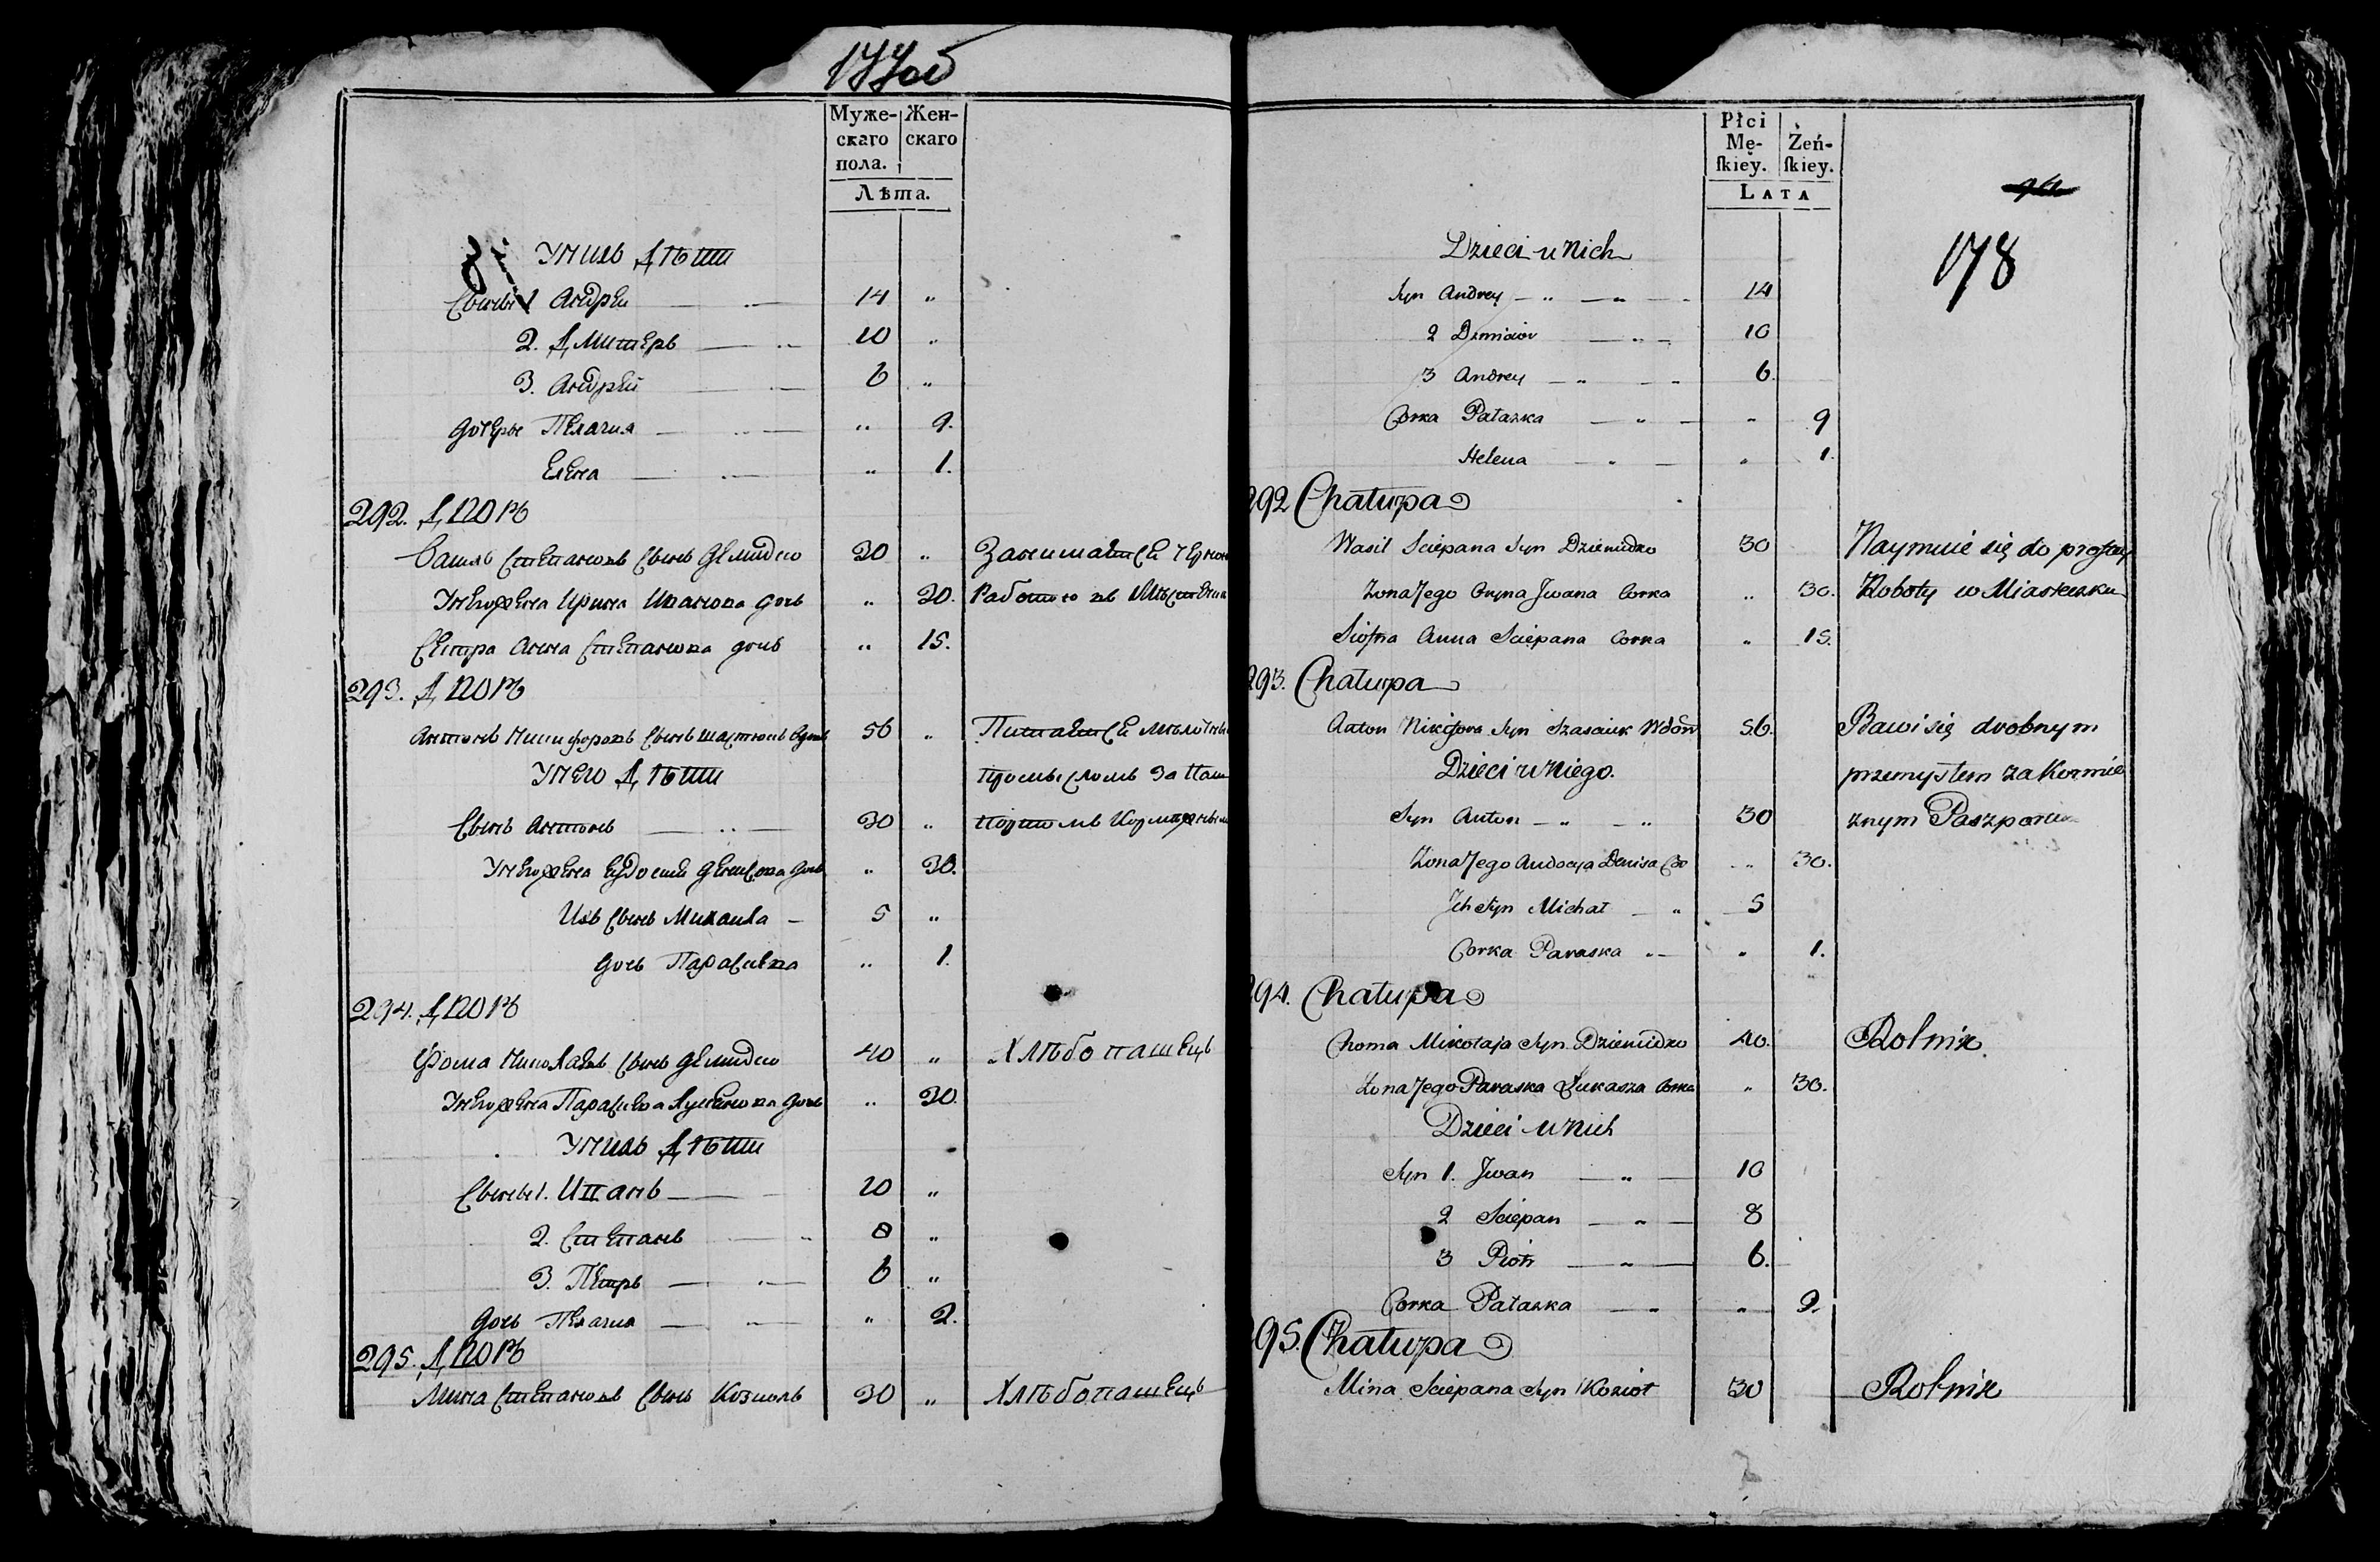 177об
Муже- Жен-
скаго скаго
пола.
Лѣта.
У нихъ Дѣти
Сыновья 1 Андрей 14 "
2. Дмитеръ 10 "
3. Андрей 6 "
дочери Пелагия " 9.
Елена " 1.
292. Дворъ
Василь Степановъ Сынъ Демидко 30 " Занимается чернои
У него жена Ирина Иванова дочь " 30. Работою въ Мѣстечк
Сестра Анна Степанова дочь " 15.
293. Дворъ
Антонъ Никифоровъ Сынъ Шастюкъ вдовъ 56 " Питается мѣлочны
У него Дѣти промысломъ за Паш
Сынъ Антонъ 30 " портомъ Кормежным
У него жена Евдосия Денисова дочь " 30.
Ихъ Сынъ Михаила 5 "
дочь Парасквва " 1.
294. Дворъ
Фома Николаевъ Сынъ Демидко 40 " Хлѣбопашецъ
У него жена Парасква Лукьянова дочь " 30.
У нихъ Дѣти
Сыновья 1. Иванъ 10 "
2. Степанъ 8 "
3. Петръ 6 "
дочь Пелагия " 2.
295. Дворъ
Мина Степановъ Сынъ Козиолъ 30 " Хлѣбопашецъ
Płci
Mę- Żeń-
ſkiey. ſkiey.
LATA
178
Dzieci u Nich
Syn Andrey 14
2 Dzmicior 10
3 Andrey 6.
Corka Pałazka " 9
Helena " 1.
292 Chałupa
Wasil Sciepana Syn Dziemidko 30 Naymuie się do prostey
Zona Jego Oryna Jwana Corka " 30. Roboty w Miasteczku
Siostra Anna Sciepana Corka " 15.
293. Chałupa
Anton Nikifora Syn Szasciuk Wdow 56. Bawi się drobnym
Dzieci u Niego. przemysłem za Kormie
Syn Anton 30 znym Paszportem
Zona Jego Audocya Denisa Co " 30.
Jch Syn Michał 5
Corka Paraska " 1.
294. Chałupa
Choma Mikołaja Syn Dziemidko 40. Rolnik.
Zona Jego Paraska Łukasza Corka " 30.
Dzieci u Nich
Syn 1. Jwan 10
2 Sciepan 8
3 Piotr 6.
Corka Pałazka " 2.
295. Chałupa
Mina Sciepana Syn Kozioł 30 Rolnik